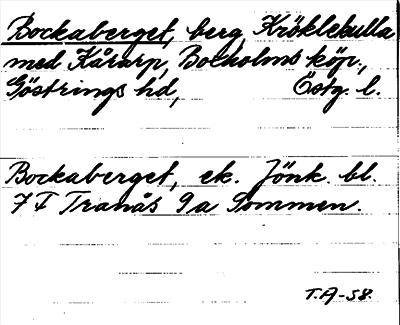 Bockaberget, berg, Kröklekulla
med Kårarp, Boxholms köp.,
Göstrings hd, Östg. l.
Bockaberget, ek. Jönk. bl.
7 F Tranås 9a Sommen.
T.A-58.